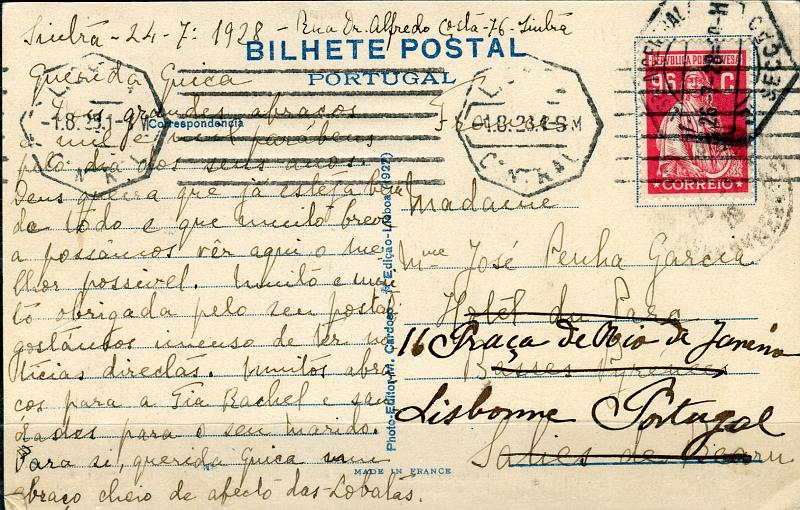 Sintra - 24-7: 1928 - Rua Dr. Alfredo Costa-76-Sintra
BILHETE POSTAL
PORTUGAL
Correspondencia
Querida Guica
grandes abraços
e mil parabens
pelo dia dos seus anos.
Deus queira que já esteja
de todo e que muito breve
a possâmos vêr aqui o me-
lhor possivel. Muito e mui-
to obrigada pelo seu postal
gostámos imenso de ter no-
ticias directas. Muitos abra-
ços para a Tia Rachel e sau-
dades para o seu marido.
Para si, querida Guica um
abraço cheio de afecto das Lobatas.
Photo-Editor-M. Cardoso - 1ª Edição-Lisboa (1927)
MADE IN FRANCE
REPUBLICA PORTUGUESA
96 C.
CORREIO
CENTRAL
1.8.28
France
Madame
Mme José Penha Garcia
Hotel du Parc
16 Praça de Rio de Janeiro
Basses Pyrénées
Lisbonne Portugal
Salies de Béarn